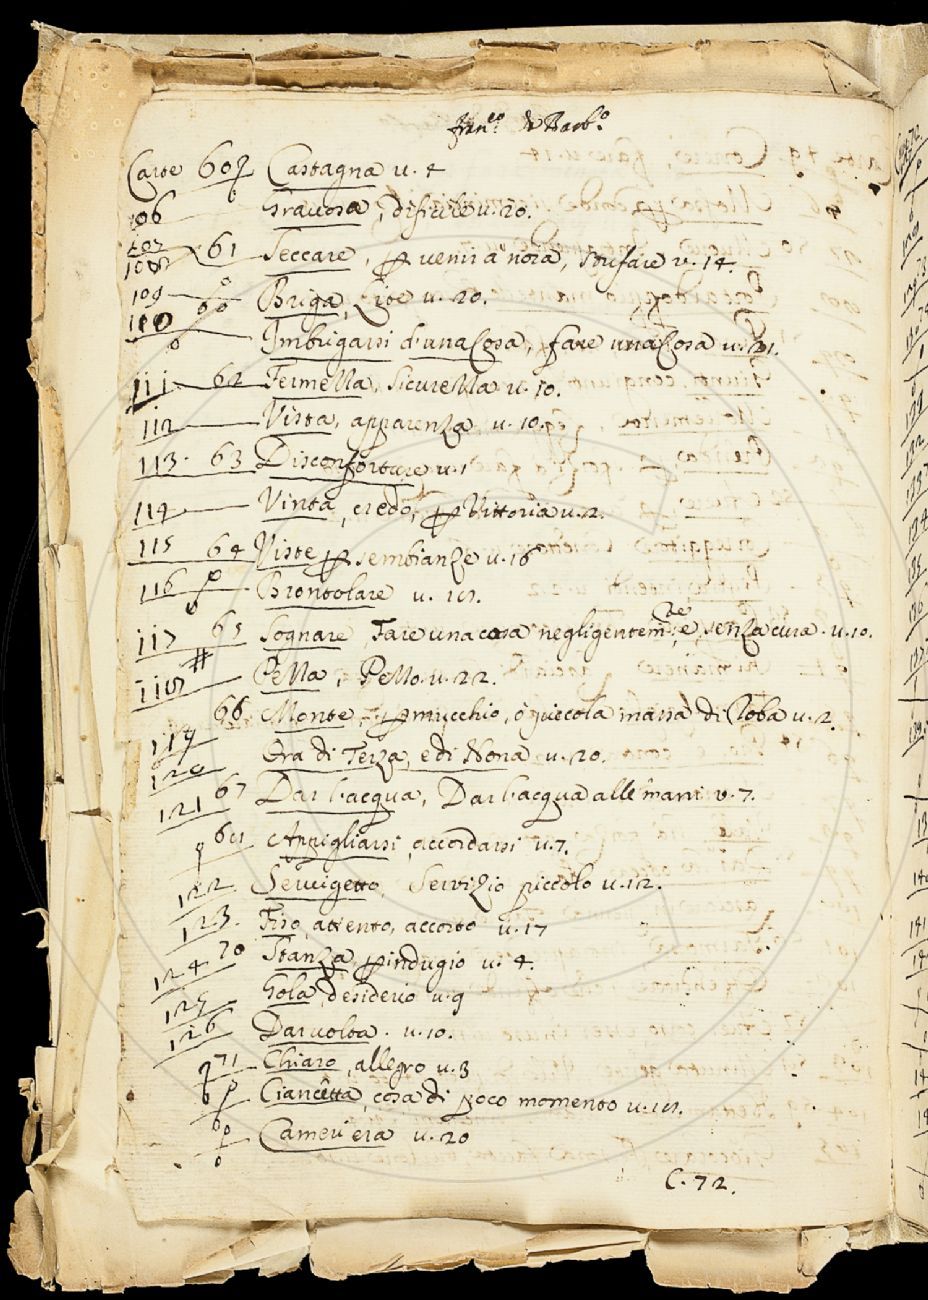 Carte 60 Castagna v. 4
106 Gravosa, difficile v. 20.
107
108 61 Seccare, p venir à noia, stufare v. 14.
109 Briga, Lite v. 20.
110 Imbrigarsi d'una Cosa, fare una Cosa v. 21.
111 62 Fermezza, sicurezza v. 10.
112 Vista, apparenza, v. 10.
113. 63 Disconfortare v. 1
114 Vinta, credo, p Vittoria v. 2.
115 64 Viste p sembianze v. 16
116 Brontolare v. 18.
117 65 Sognare, Fare una cosa negligentemte, e senza cura. v. 10.
118 # Pella, Pello v. 22.
66 Monte, p mucchio, ò piccola massa di Roba v. 2.
119
120 Ora di Terza, e di Nona v. 20.
121 67 Dar l'acqua, Dar l'acqua alle mani v. 7.
68 Appigliarsi, accordarsi v. 7.
122. Servigetto, Servizio piccolo v. 12.
123. Fiso, attento, accorto v. 17
124 70 Stanza, p indugio v. 4.
125 Gola desiderio v. 9
126 Dar volta. v. 10.
71 Chiaro, allegro v. 3
Ciancetta, cosa di poco momento v. 18.
Camer'era v. 20
C. 72.